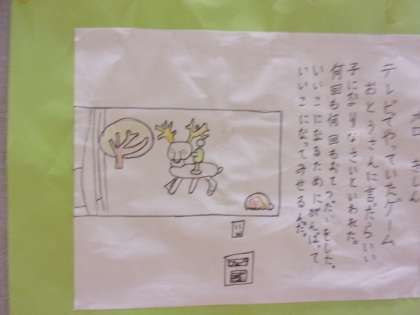 テレビでやっていたゲーム
おとうさんに言ったらいい
子になりなさいといわれた。
何回も何回もおてつだいをした。
いいこになるためにがんばって
いいこになってみせるんだ。